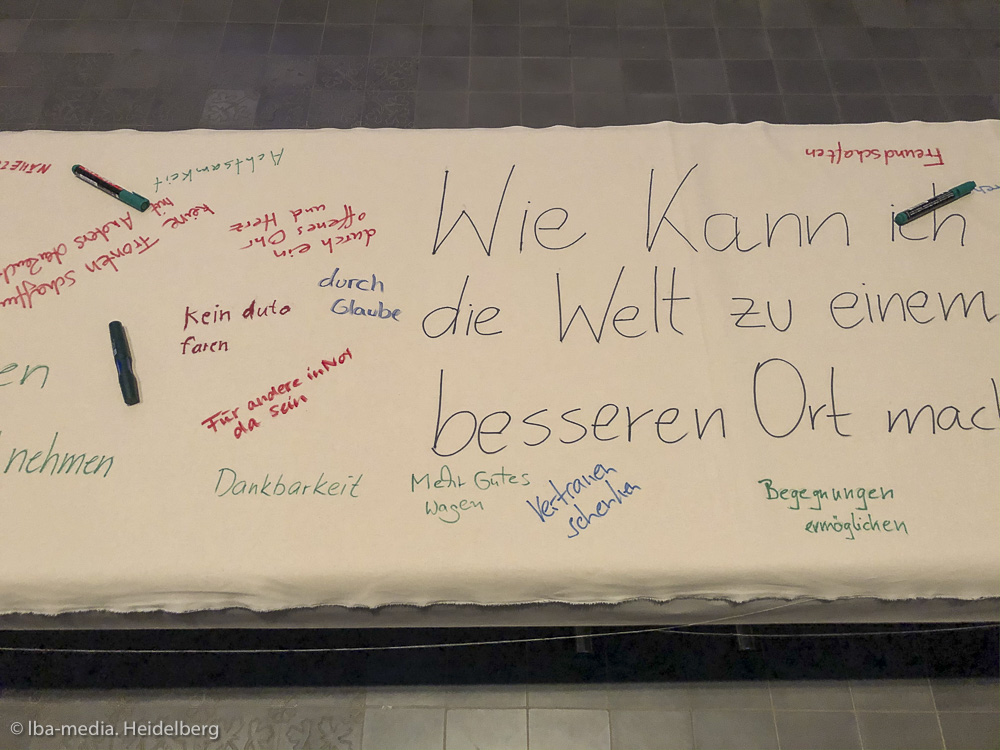 Wie Kann ich
die Welt zu einem
besseren Ort mach
Freundschaften
Achtsamkeit
durch ein
offenes Ohr
und Herz
keine Fronten schaffen
mit Anders
durch
Glaube
Kein Auto
faren
Für andere in Not
da sein
en
nehmen
Dankbarkeit
Mehr Gutes
wagen
Vertrauen
schenken
Begegnungen
ermöglichen
© lba-media. Heidelberg